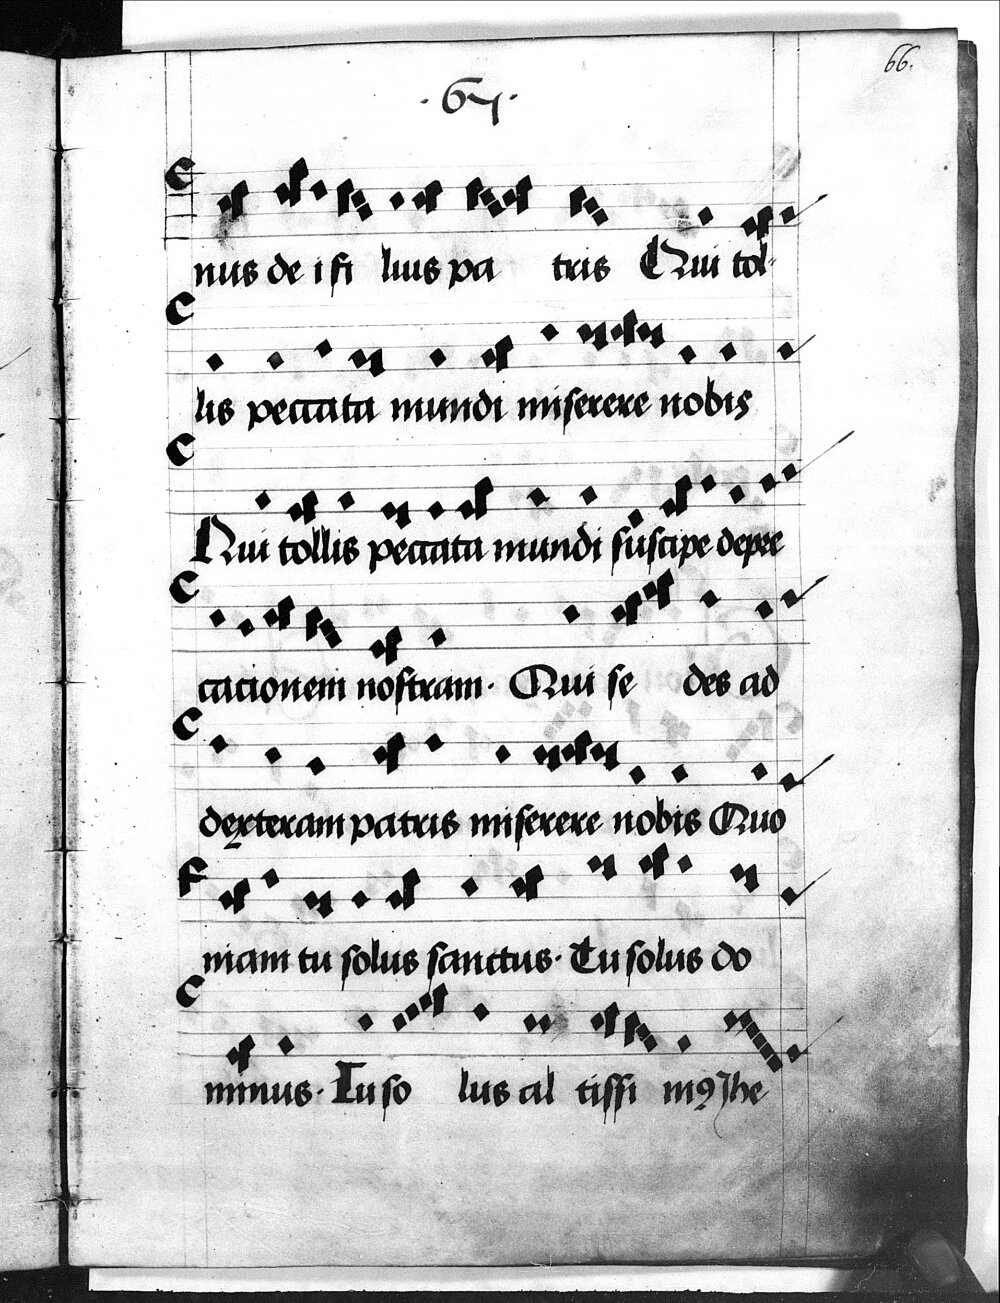 66.
·67·
nus de i fi lius pa tris Qui tol-
lis peccata mundi miserere nobis
Qui tollis peccata mundi suscipe depre
cacionem nostram· Qui se des ad
dexteram patris miserere nobis Quo
niam tu solus sanctus· Tu solus do
minus· Tu so lus al tissi mꝰ Jhe